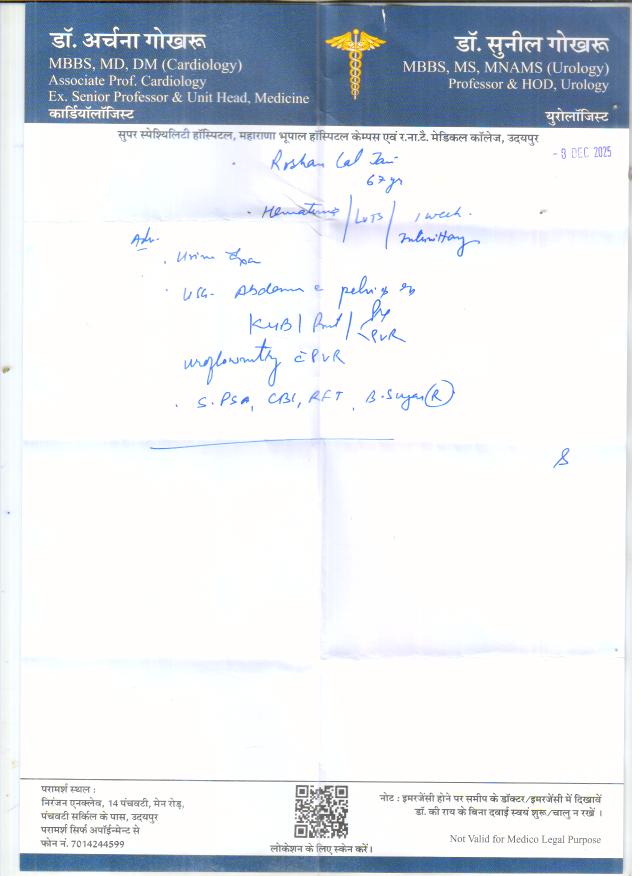 डॉ. अर्चना गोखरू
MBBS, MD, DM (Cardiology)
Associate Prof. Cardiology
Ex. Senior Professor & Unit Head, Medicine
कार्डियॉलॉजिस्ट
डॉ. सुनील गोखरू
MBBS, MS, MNAMS (Urology)
Professor & HOD, Urology
युरोलॉजिस्ट
सुपर स्पेश्यिलिटी हॉस्पिटल, महाराणा भूपाल हॉस्पिटल केम्पस एवं र.ना.टै. मेडिकल कॉलेज, उदयपुर
- 3 DEC 2025
Roshan Lal Jain
67 yr
Hematuria / LUTS / 1 week.
Adv.
Urine
USG- Abdomen c pelvis
KUB / Prost / Pre PVR
uroflowmetry c̄ PVR
S. PSA, CBC, RFT, B. Sugar (R)
परामर्श स्थल :
निरंजन एनक्लेव, 14 पंचवटी, मेन रोड़,
पंचवटी सर्किल के पास, उदयपुर
परामर्श सिर्फ अपॉईन्मेन्ट से
फोन नं. 7014244599
लोकेशन के लिए स्केन करें।
नोट : इमरजेंसी होने पर समीप के डॉक्टर/इमरजेंसी में दिखावें
डॉ. की राय के बिना दवाई स्वयं शुरू/चालु न रखें ।
Not Valid for Medico Legal Purpose